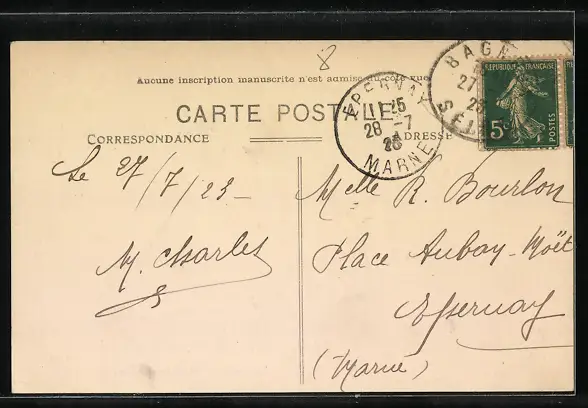 8
Aucune inscription manuscrite n'est admise du côté vue
CARTE POSTALE
CORRESPONDANCE
ADRESSE
EPERNAY
11 25
28 -7
23
MARNE
BAGN
27
SEINE
REPUBLIQUE FRANÇAISE
5c
POSTES
Le 27/7/23 -
M. Charles
Melle R. Bourlon
Place Auban-Moët
Epernay
(Marne)